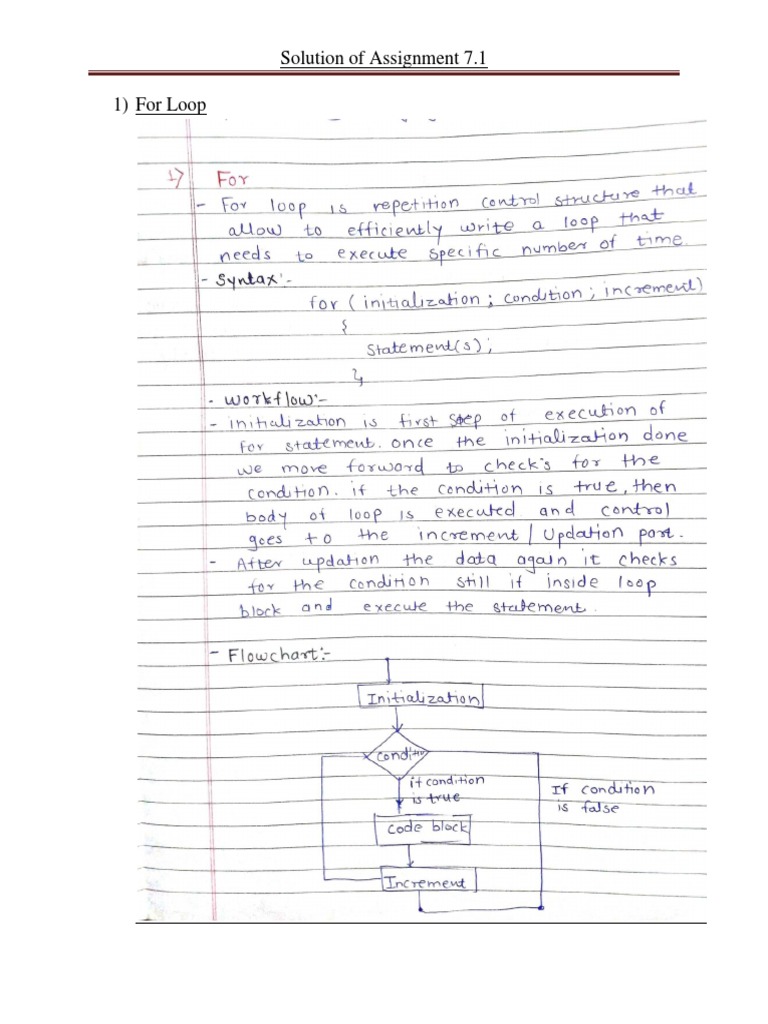 Solution of Assignment 7.1
1) For Loop
1) For
- For loop is repetition control structure that
allow to efficiently write a loop that
needs to execute specific number of time.
- Syntax:-
for (initialization ; condition ; increment)
{
Statement(s);
}
- Workflow:-
- initialization is first step of execution of
for statement. once the initialization done
we move forward to check's for the
condition. if the condition is true, then
body of loop is executed and control
goes to the increment / Updation part.
- After updation the data again it checks
for the condition still if inside loop
block and execute the statement.
- Flowchart:-
Initialization
if condition
is true
If condition
is false
Code block
Increment